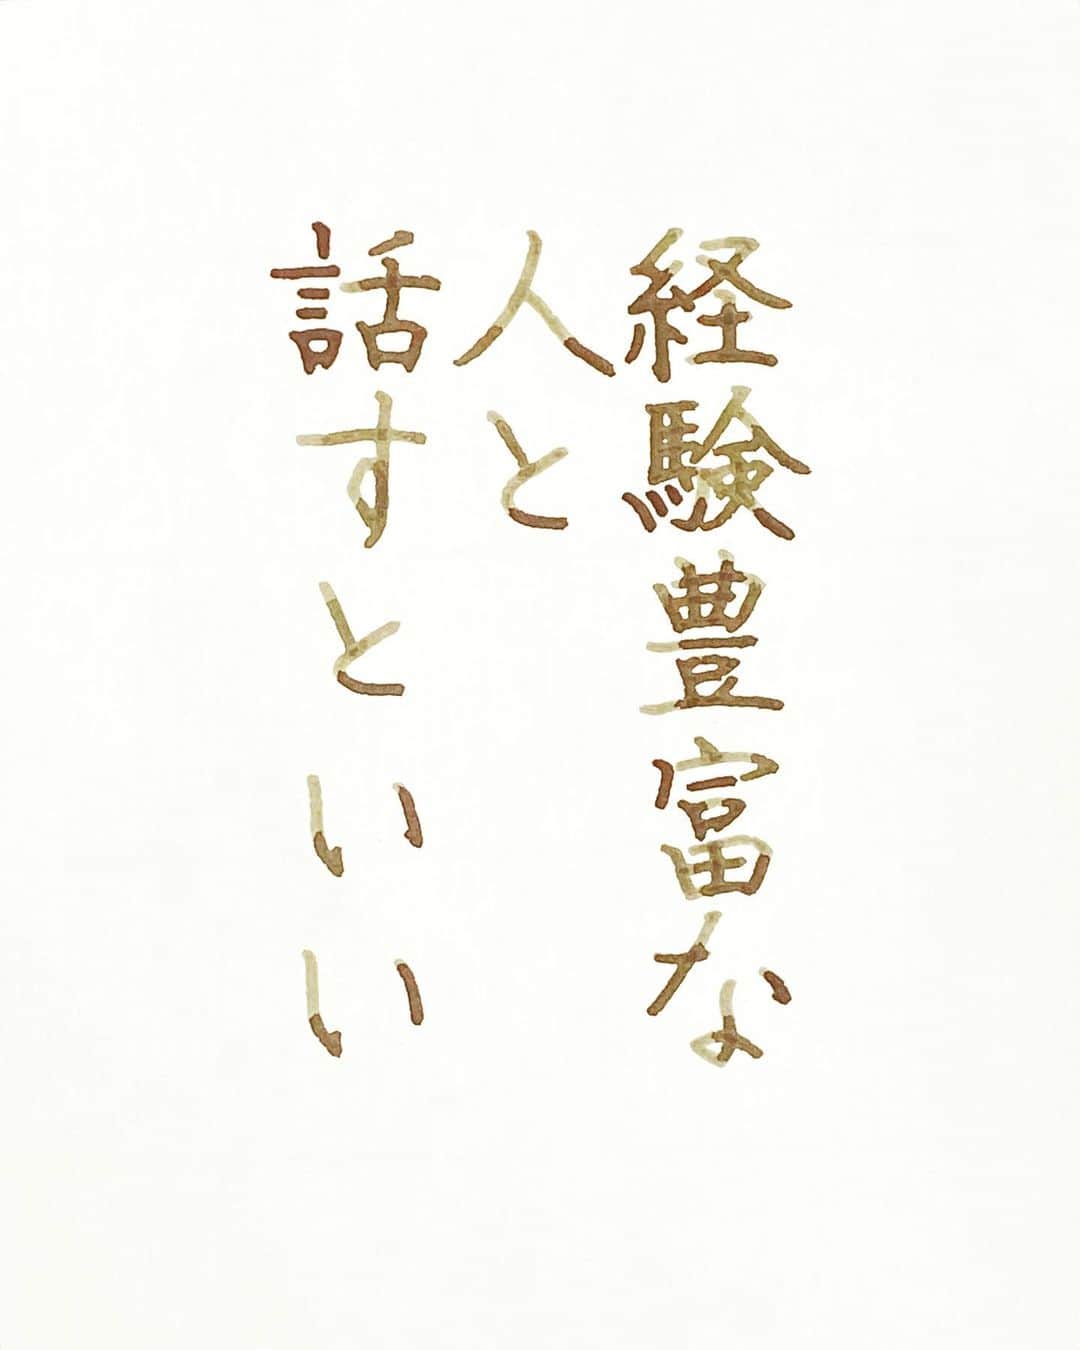 経験豊富な
人と
話すといい